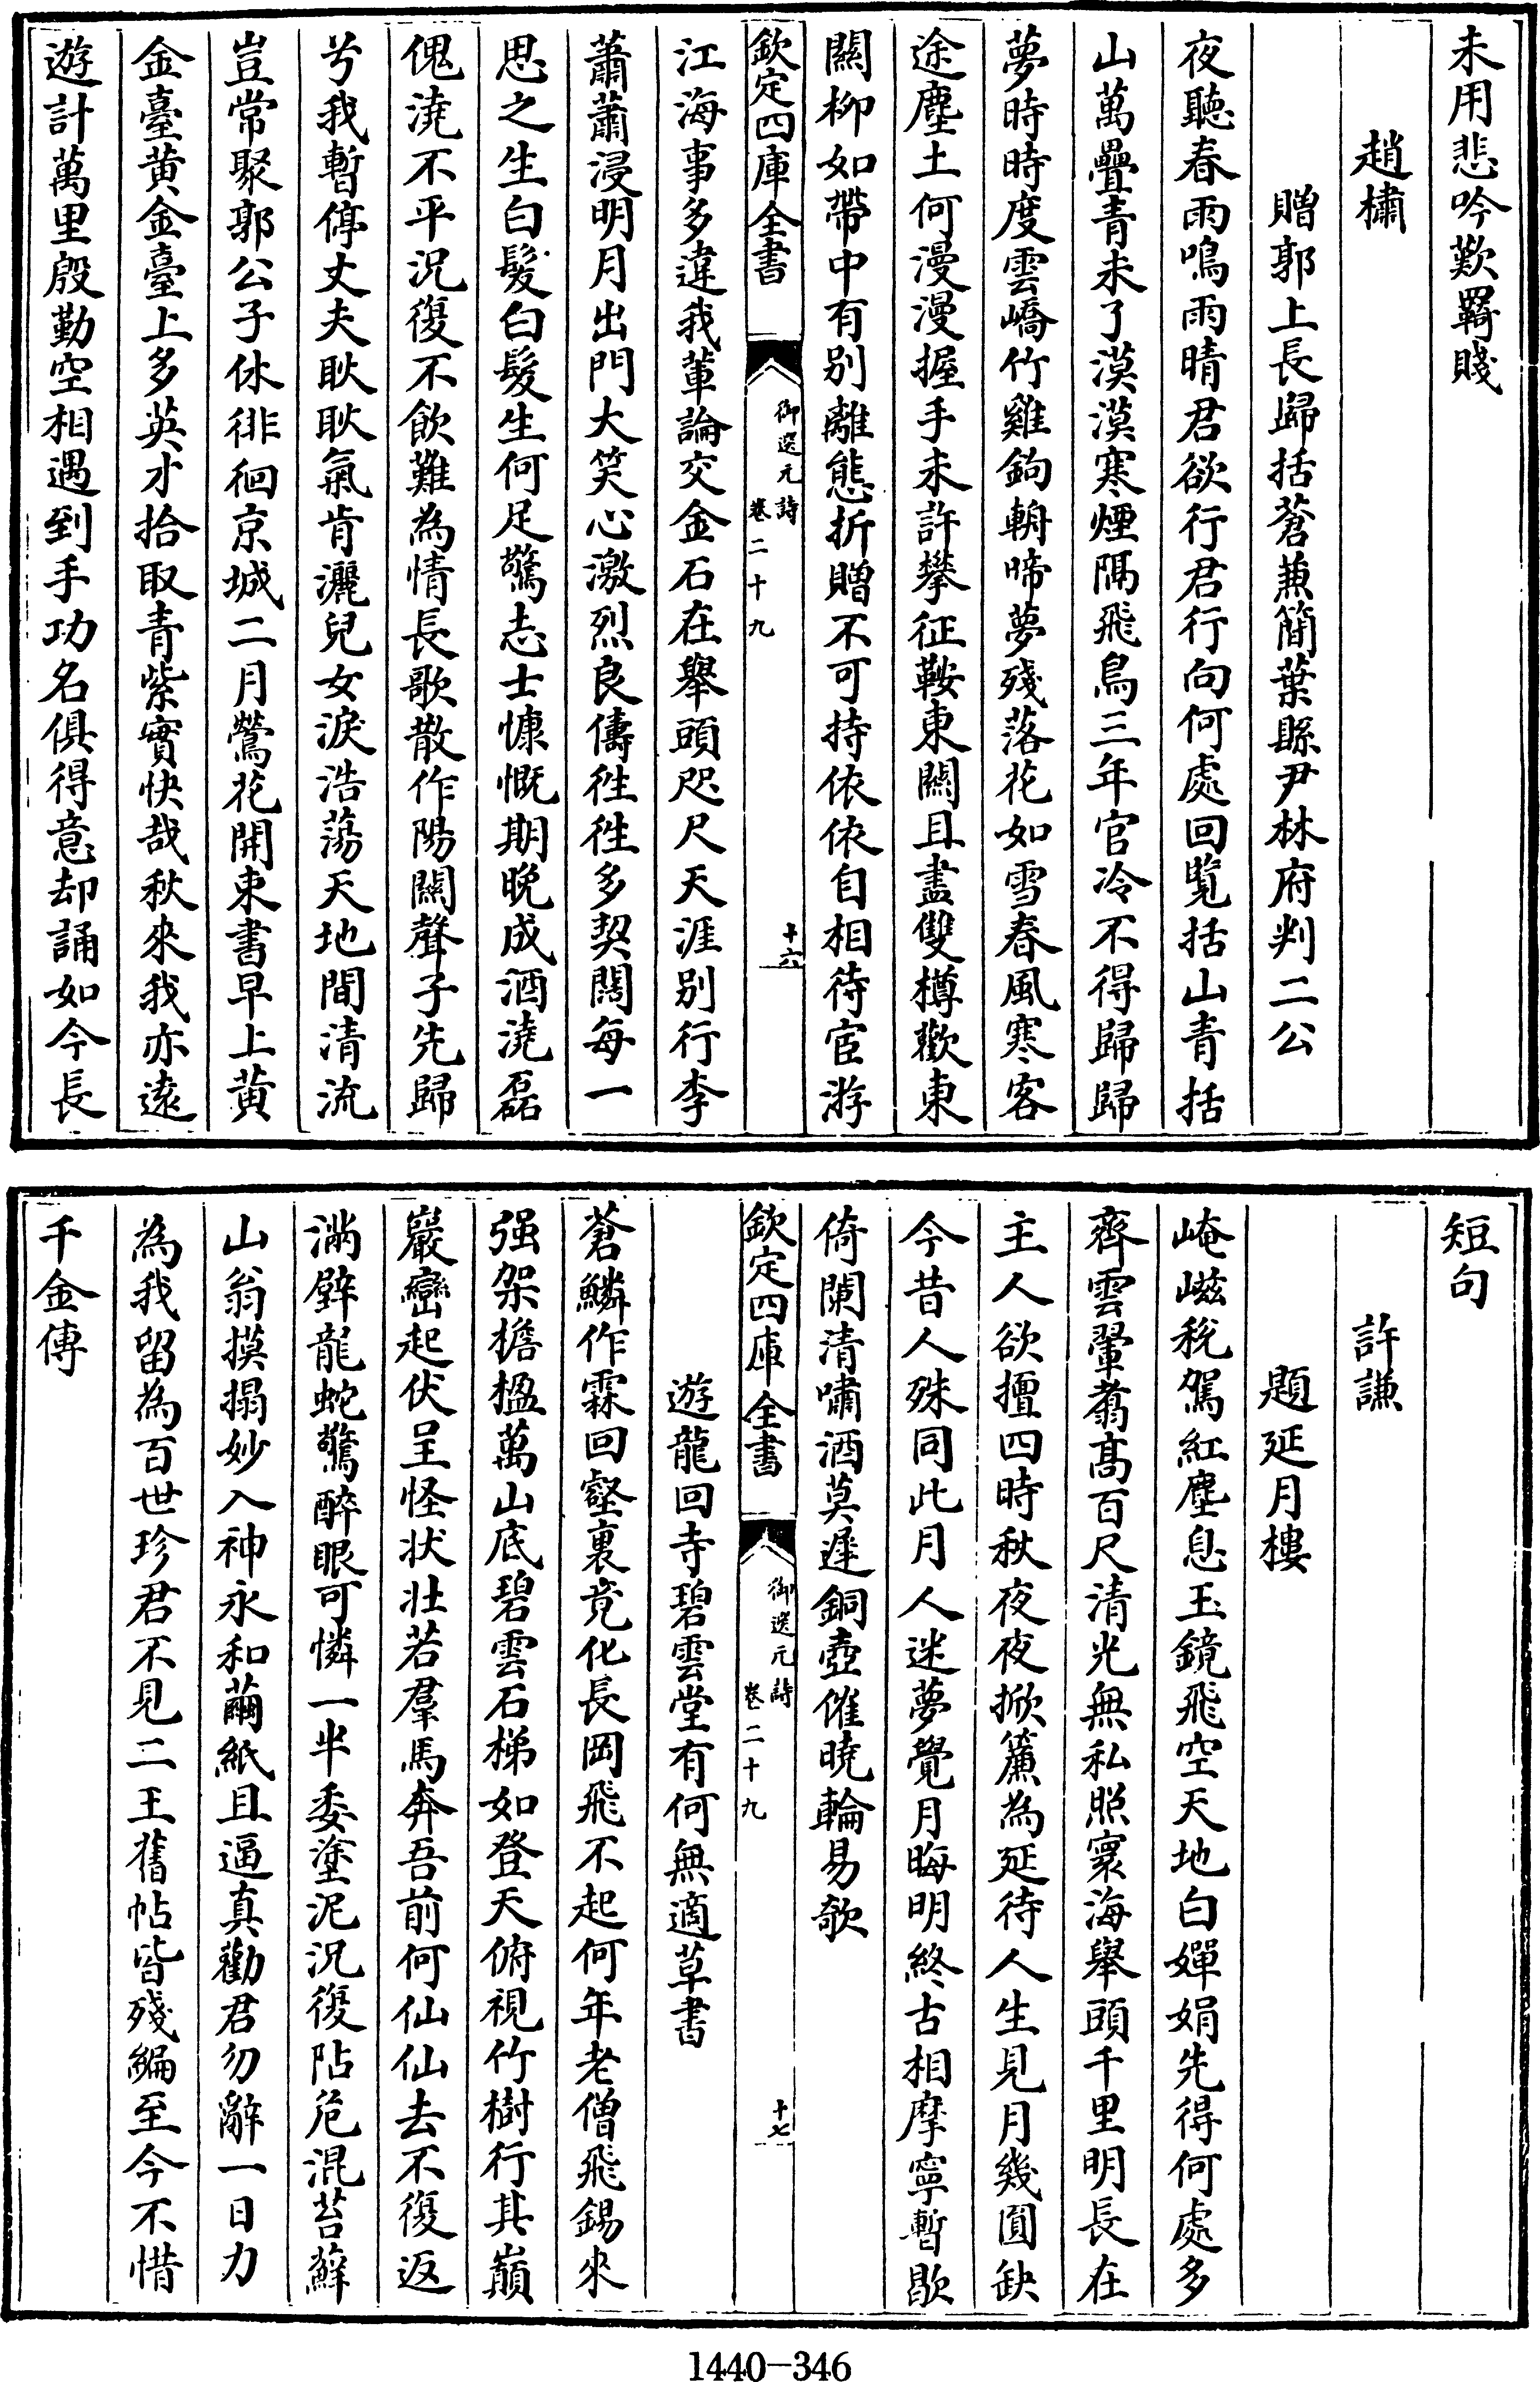 未用悲吟歎羇賤
趙櫹
贈郭上長歸括蒼兼簡葉縣尹林府判二公
夜聽春雨鳴雨晴君欲行君行向何處回覧括山青括
山萬疊青未了漠漠寒煙隅飛鳥三年官冷不得歸歸
夢時時度雲嶠竹雞鉤輈啼夢殘落花如雪春風寒客
途塵土何漫漫握手未許攀征鞍東闗且盡雙樽歡東
闗柳如帶中有别離態折贈不可持依依自相待宦游
欽定四庫全書
御選元詩
卷二十九
十六
江海事多違我輩論交金石在舉頭咫尺天涯别行李
蕭蕭浸明月出門大笑心激烈良儔徃徃多契闊每一
思之生白髮白髮生何足驚志士慷慨期晚成酒澆磊
傀澆不平况復不飲難為情長歌散作陽闗聲子先歸
兮我暫停丈夫耿耿氣肯灑兒女淚浩蕩天地間清流
豈常聚郭公子休徘徊京城二月鶯花開束書早上黄
金臺黄金臺上多英才拾取青紫實快哉秋來我亦遠
遊計萬里殷勤空相遇到手功名俱得意却誦如今長
短句
許謙
題延月樓
崦嵫稅駕紅塵息玉鏡飛空天地白嬋娟先得何處多
齊雲翬翥髙百尺清光無私照寰海舉頭千里明長在
主人欲擅四時秋夜夜掀簾為延待人生見月幾圓缺
今昔人殊同此月人迷夢覺月晦明終古相摩寧暫歇
倚闌清嘯酒莫遲銅壺催曉輪易欹
欽定四庫全書
御選元詩
卷二十九
十七
遊龍回寺碧雲堂有何無適草書
蒼鱗作霖回壑裏竟化長岡飛不起何年老僧飛錫來
强架檐楹萬山底碧雲石梯如登天俯視竹樹行其巔
巖巒起伏呈怪状壯若羣馬奔吾前何仙仙去不復返
滿壁龍蛇驚醉眼可憐一半委塗泥况復阽危混苔蘚
山翁摸搨妙入神永和繭紙且逼真勸君勿辭一日力
為我留為百世珍君不見二王舊帖皆殘編至今不惜
千金傳
1440—346